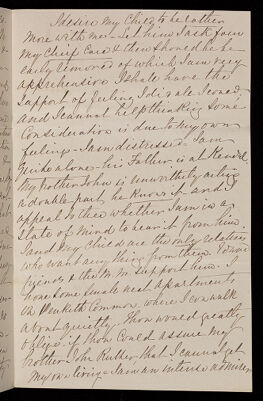 I desire my Child to be rather
more with me - Let him Jack from
My Chief Care & then should he be
early removed of which I am very
apprehensive I shall have the
support of feeling I did all I could
and I cannot help thinking some
Consideration is due to my own
feelings - I am distressed - I am
quite alone - his Father is at Kendal
My brother John is unwittingly acting
a double part, he knows it - and I
appeal to thee whether I am in a
State of Mind to hear it from him
I and my Child are the only relatives
who want any thing from them
Friends & the M. M. support him - my
home some small neat apartments
on Penketh Common, where I can walk
about quietly - Thou would greatly
oblige if thou could assure my
brother John Rutter that I cannot get
My own living - I am an intense admirer